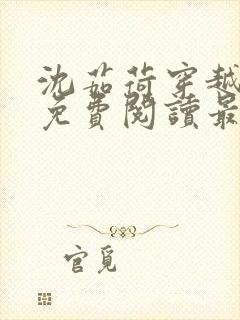 沈茹荷穿越
免費閱讀最
官覓